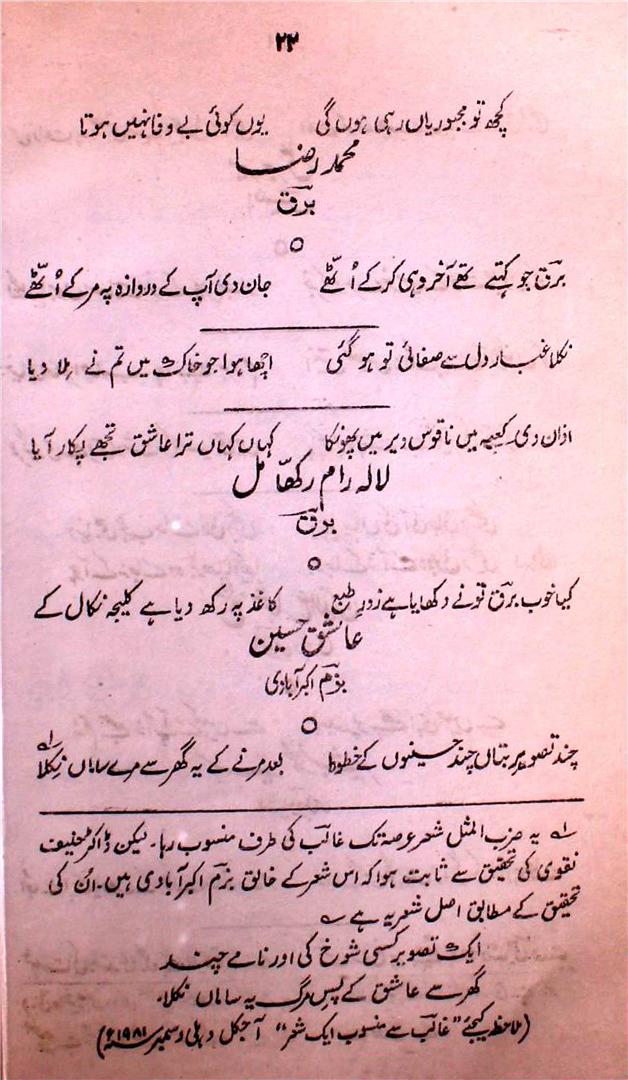 ۲۳
کچھ تو مجبوریاں رہی ہوں گی یوں کوئی بے وفا نہیں ہوتا
محمد رضا
برقؔ
برقؔ جو کہتے تھے آخر وہی کر کے اُٹھے جان دی آپ کے دروازہ پہ مر کے اُٹھے
نکلا غبار دل سے صفائی تو ہو گئی اچھا ہوا جو خاک میں تم نے مِلا دیا
اذاں دی کعبہ میں ناقوس دیر میں پھونکا کہاں کہاں ترا عاشق تجھے پکار آیا
لالہ رام رکھا مل
برقؔ
کیا خوب برقؔ تو نے دکھایا ہے زورِ طبع کاغذ پہ رکھ دیا ہے کلیجہ نکال کے
عاشق حسین
بزمؔ اکبرآبادی
چند تصویرِ بتاں چند حسینوں کے خطوط بعد مرنے کے یہ گھر سے مرے ساماں نکلا ؎۱
؎۱ یہ ضرب المثل شعر عرصہ تک غالبؔ کی طرف منسوب رہا۔ لیکن ڈاکٹر حنیف
نقوی کی تحقیق سے ثابت ہوا کہ اس شعر کے خالق بزمؔ اکبرآبادی ہیں۔ اُن کی
تحقیق کے مطابق اصل شعر یہ ہے ؎
ایک تصویر کسی شوخ کی اور نامے چند
گھر سے عاشق کے پسِ مرگ یہ ساماں نکلا۔
(ملاحظہ کیجئے "غالبؔ سے منسوب ایک شعر" آجکل دہلی دسمبر سنہ ۱۹۸۱ء)